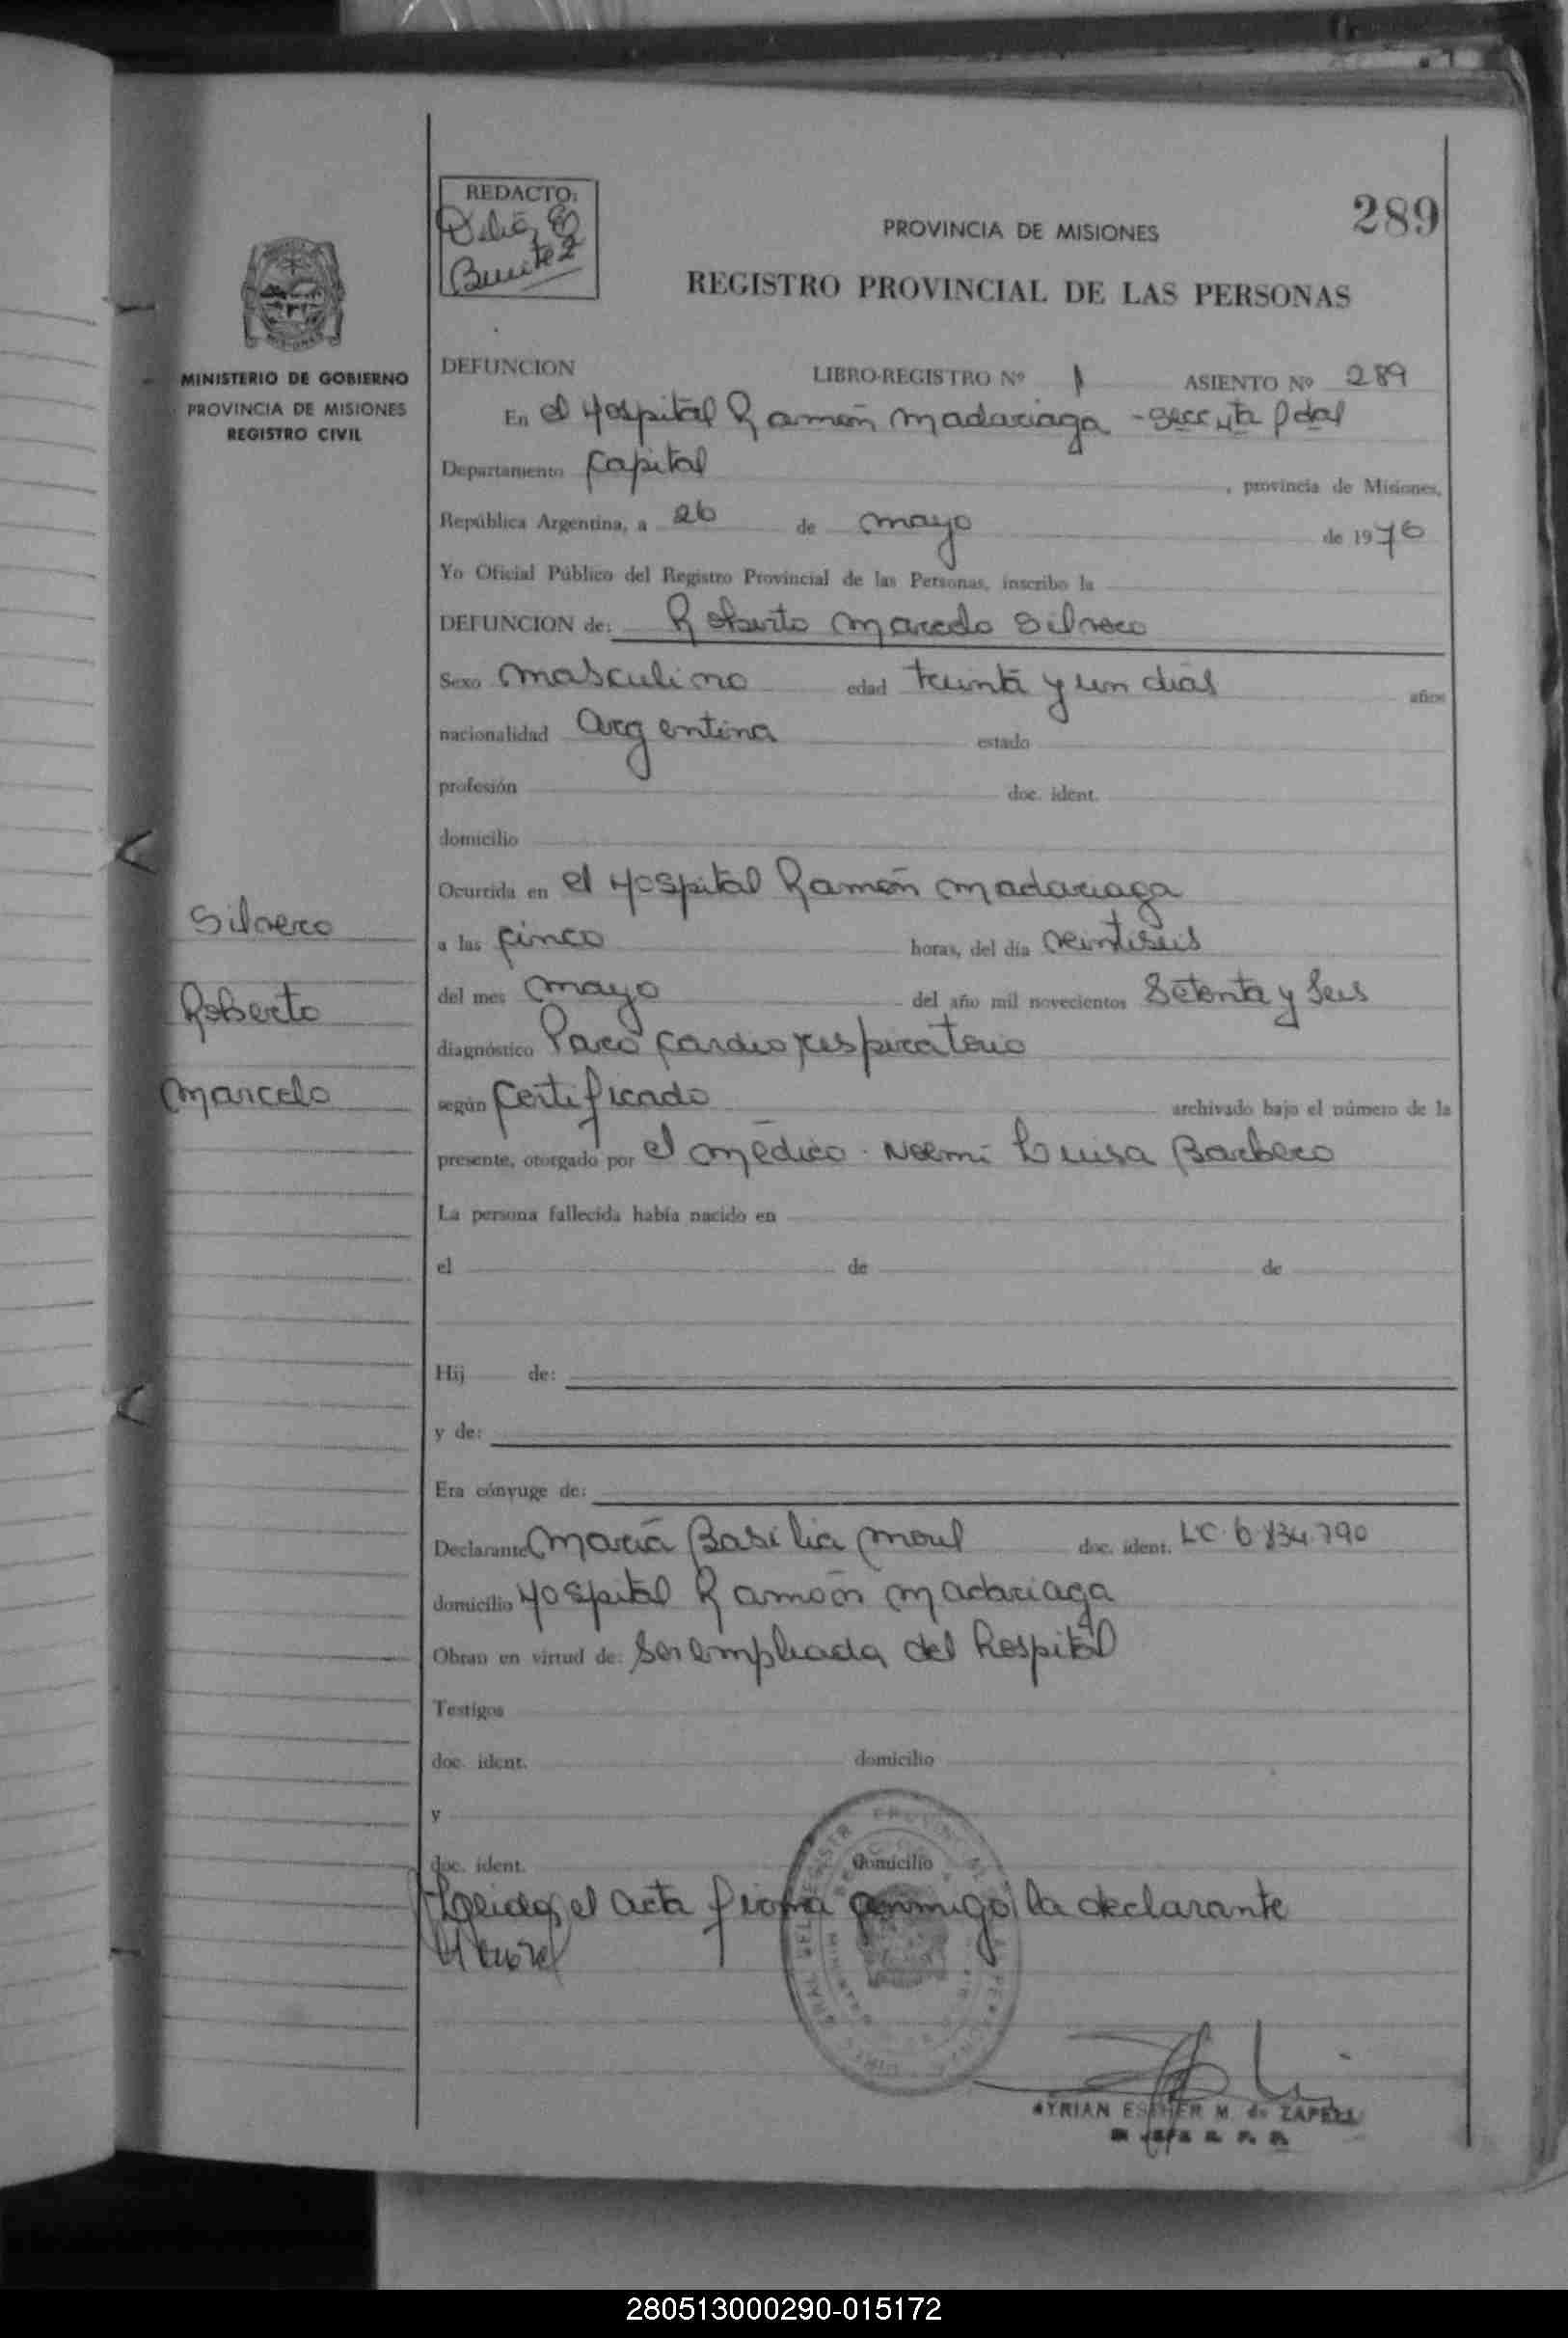 REDACTO:
Delia E
Benitez
289
PROVINCIA DE MISIONES
REGISTRO PROVINCIAL DE LAS PERSONAS
MINISTERIO DE GOBIERNO
PROVINCIA DE MISIONES
REGISTRO CIVIL
DEFUNCION LIBRO-REGISTRO Nº 1 ASIENTO Nº 289
En el Hospital Ramón Madariaga - Secc 4ta Pdas
Departamento Capital, provincia de Misiones,
República Argentina, a 26 de mayo de 1976
Yo Oficial Público del Registro Provincial de las Personas, inscribo la
DEFUNCION de: Roberto Marcelo Silvero
Sexo masculino edad treinta y un dias años
nacionalidad argentina estado
profesión doc. ident.
domicilio
Ocurrida en el Hospital Ramón Madariaga
Silvero
a las cinco horas, del día veintiseis
Roberto
del mes mayo del año mil novecientos Setenta y Seis
diagnóstico Paro cardio respiratorio
Marcelo
según certificado archivado bajo el número de la
presente, otorgado por el médico. Noemi Luisa Barbero
La persona fallecida había nacido en
el de de
Hij de:
y de:
Era cónyuge de:
Declarante Maria Basilia Moul doc. ident. LC 6.834.790
domicilio Hospital Ramón Madariaga
Obran en virtud de: Ser empleada del hospital
Testigos
doc. ident. domicilio
y
doc. ident. domicilio
Leida el acta firma conmigo la declarante
ESTHER M. de ZAPELL
280513000290-015172